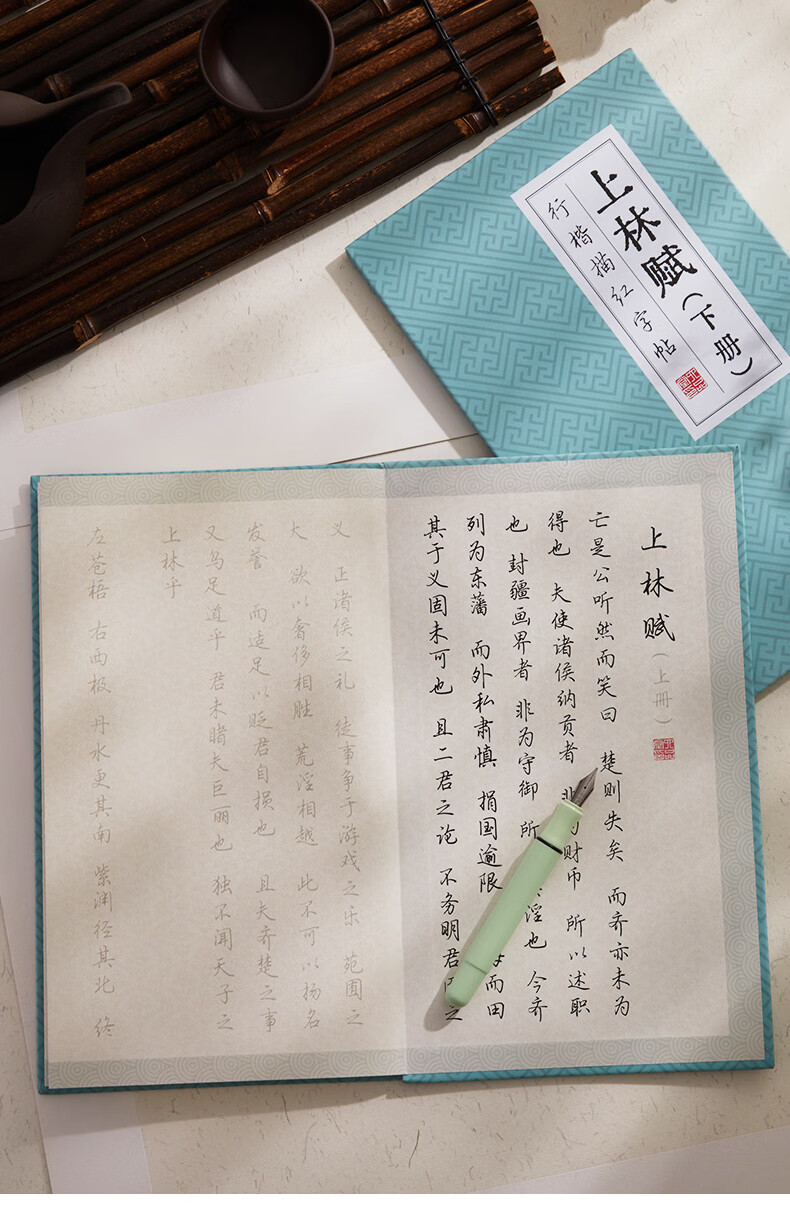 上林赋（下册）
行楷描红字帖
上林赋（上册）
亡是公听然而笑曰 楚则失矣 而齐亦未为
得也 夫使诸侯纳贡者 非为财币 所以述职
也 封疆画界者 非为守御 所 淫也 今齐
列为东藩 而外私肃慎 捐国逾限 而田
其于义固未可也 且二君之论 不务明君 之
义 正诸侯之礼 徒事争于游戏之乐 苑囿之
大 欲以奢侈相胜 荒淫相越 此不可以扬名
发誉 而适足以贬君自损也 且夫齐楚之事
又乌足道乎 君未睹夫巨丽也 独不闻天子之
上林乎
左苍梧 右西极 丹水更其南 紫渊径其北 终